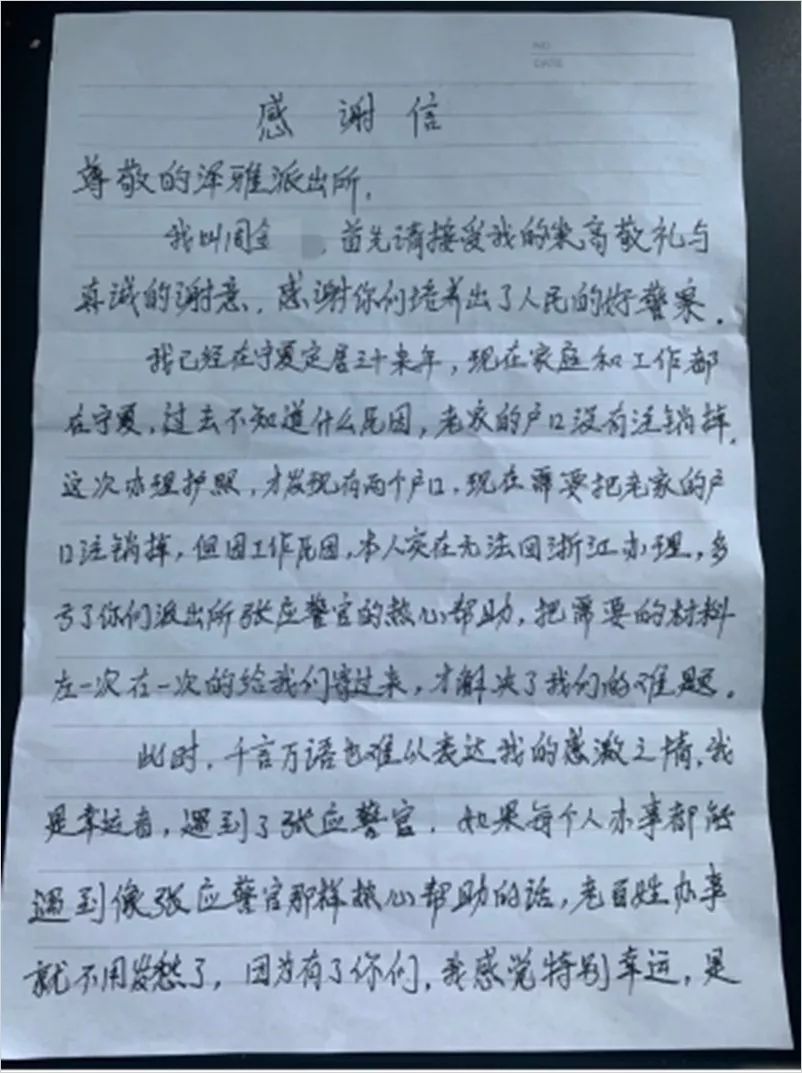 NO
DATE
感谢信
尊敬的泽雅派出所,
我叫周金 ,首先请接受我的崇高敬礼与
真诚的谢意,感谢你们培养出了人民的好警察.
我已经在宁夏定居三十来年,现在家庭和工作都
在宁夏,过去不知道什么原因,老家的户口没有注销掉.
这次办理护照,才发现有两个户口,现在需要把老家的户
口注销掉,但因工作原因,本人实在无法回浙江办理,多
亏了你们派出所张应警官的热心帮助,把需要的材料
在一次在一次的给我们寄过来,才解决了我们的难题.
此时,千言万语也难以表达我的感激之情,我
是幸运者,遇到了张应警官.如果每个人办事都能
遇到像张应警官那样热心帮助的话,老百姓办事
就不用发愁了,因为有了你们,我感觉特别幸运,是